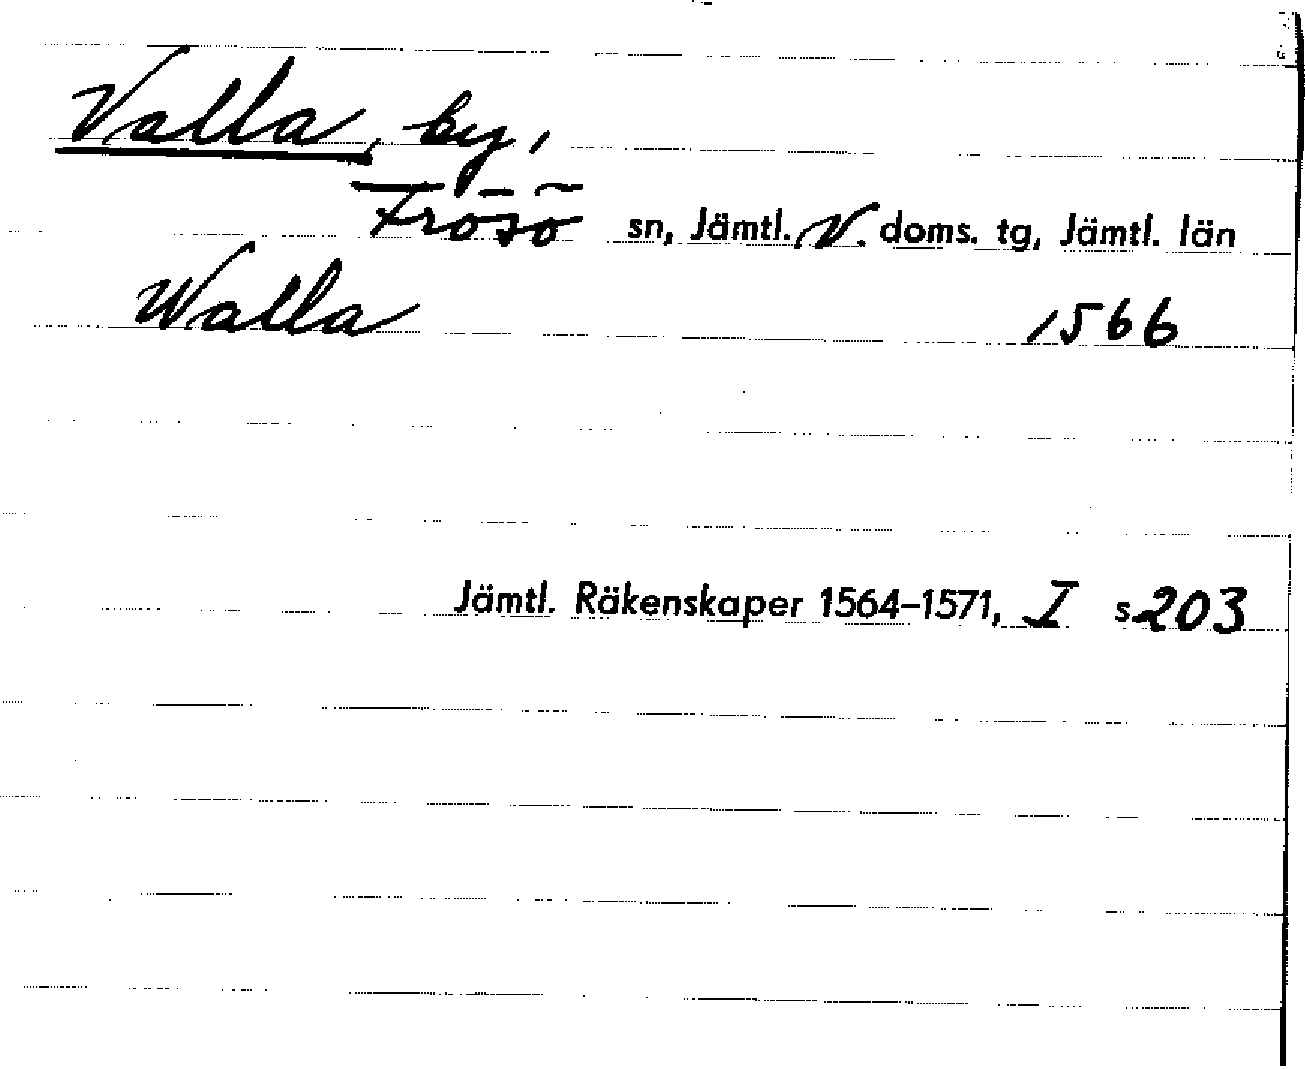 Valla, by,
Frösö sn, Jämtl. V. doms. tg, Jämtl. län
Walla 1566
Jämtl. Räkenskaper 1564–1571, I s 203